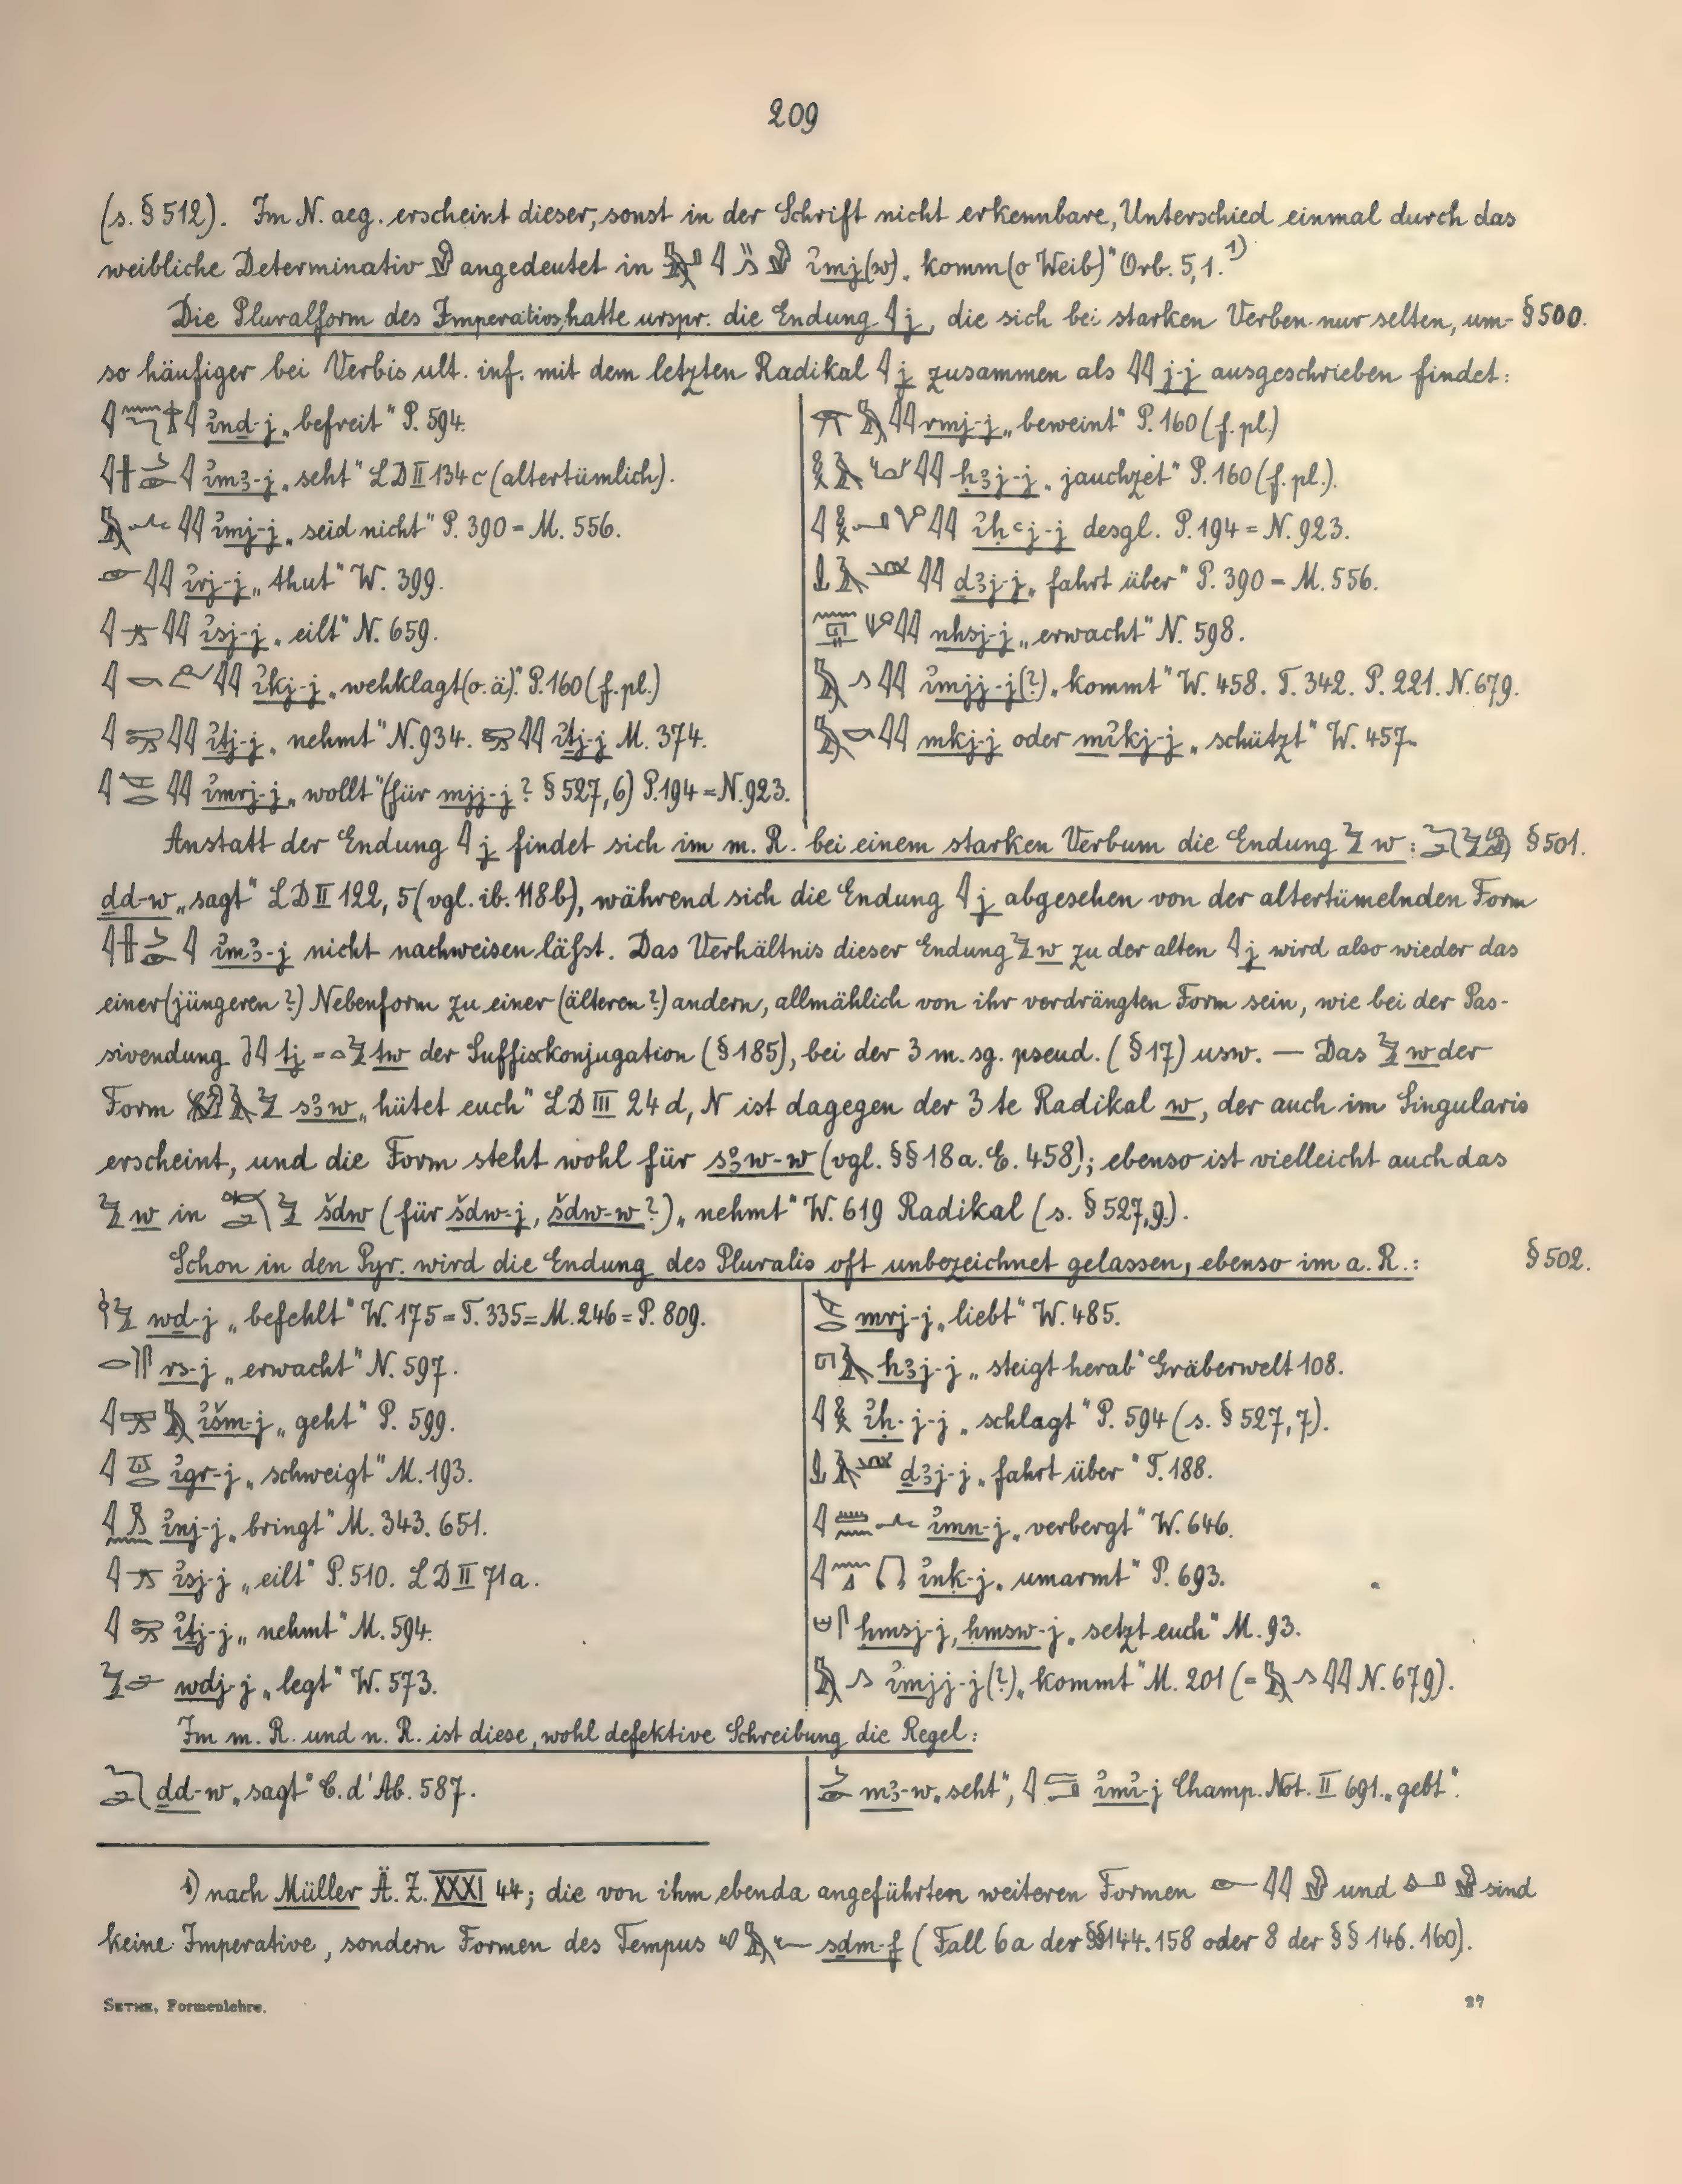 209
(s. § 512). Im N. aeg. erscheint dieser, sonst in der Schrift nicht erkennbare, Unterschied einmal durch das
weibliche Determinativ angedeutet in ỉmj(w) „komm (o Weib)" Orb. 5,1. 1)
Die Pluralform des Imperativs hatte urspr. die Endung j, die sich bei starken Verben nur selten, um- § 500.
so häufiger bei Verbis ult. inf. mit dem letzten Radikal j zusammen als j-j ausgeschrieben findet:
ỉnd-j „befreit" P. 594.
ỉmꜣ-j „seht" LD II 134c (altertümlich).
ỉmj-j „seid nicht" P. 390 = M. 556.
ỉrj-j „thut" W. 399.
ỉsj-j „eilt" N. 659.
ỉkj-j „wehklagt (o. ä)." P. 160 (f. pl.)
ỉṯj-j „nehmt" N. 934. ỉṯj-j M. 374.
ỉmrj-j „wollt" (für mjj-j? § 527,6) P. 194 = N. 923.
rmj-j „beweint" P. 160 (f. pl.)
ḥꜣj-j „jauchzet" P. 160 (f. pl.).
ỉḥꜥj-j desgl. P. 194 = N. 923.
ḏꜣj-j „fahrt über" P. 390 = M. 556.
nhsj-j „erwacht" N. 598.
ỉmjj-j (?) „kommt" W. 458. T. 342. P. 221. N. 679.
mkj-j oder mỉkj-j „schützt" W. 457.
Anstatt der Endung j findet sich im m. R. bei einem starken Verbum die Endung w: § 501.
ḏd-w „sagt" LD II 122, 5 (vgl. ib. 118b), während sich die Endung j abgesehen von der altertümelnden Form
ỉmꜣ-j nicht nachweisen läfst. Das Verhältnis dieser Endung w zu der alten j wird also wieder das
einer (jüngeren?) Nebenform zu einer (älteren?) andern, allmählich von ihr verdrängten Form sein, wie bei der Pas-
sivendung tj = tw der Suffixkonjugation (§ 185), bei der 3 m. sg. pseud. (§ 17) usw. — Das w der
Form sꜣw „hütet euch" LD III 24 d, N ist dagegen der 3te Radikal w, der auch im Singularis
erscheint, und die Form steht wohl für sꜣw-w (vgl. §§ 18 a. E. 458); ebenso ist vielleicht auch das
w in šdw (für šdw-j, šdw-w?) „nehmt" W. 619 Radikal (s. § 527,9).
Schon in den Pyr. wird die Endung des Pluralis oft unbezeichnet gelassen, ebenso im a. R.: § 502.
wḏ-j „befehlt" W. 175 = T. 335 = M. 246 = P. 809.
rs-j „erwacht" N. 597.
ỉšm-j „geht" P. 599.
ỉgr-j „schweigt" M. 193.
ỉnj-j „bringt" M. 343. 651.
ỉsj-j „eilt" P. 510. LD II 71a.
ỉṯj-j „nehmt" M. 594.
wdj-j „legt" W. 573.
mrj-j „liebt" W. 485.
hꜣj-j „steigt herab" Gräberwelt 108.
ỉḥ-j-j „schlagt" P. 594 (s. § 527,7).
ḏꜣj-j „fahrt über" T. 188.
ỉmn-j „verbergt" W. 646.
ỉnḳ-j „umarmt" P. 693.
ḥmsj-j, ḥmsw-j „setzt euch" M. 93.
ỉmjj-j (?) „kommt" M. 201 (= N. 679).
Im m. R. und n. R. ist diese, wohl defektive Schreibung die Regel:
ḏd-w „sagt" C. d'Ab. 587.
mꜣ-w „seht", ỉmỉ-j Champ. Not. II 691. „gebt".
1) nach Müller Ä. Z. XXXI 44; die von ihm ebenda angeführten weiteren Formen und sind
keine Imperative, sondern Formen des Tempus sḏm-f (Fall 6a der §§ 144. 158 oder 8 der §§ 146. 160).
SETHE, Formenlehre. 27